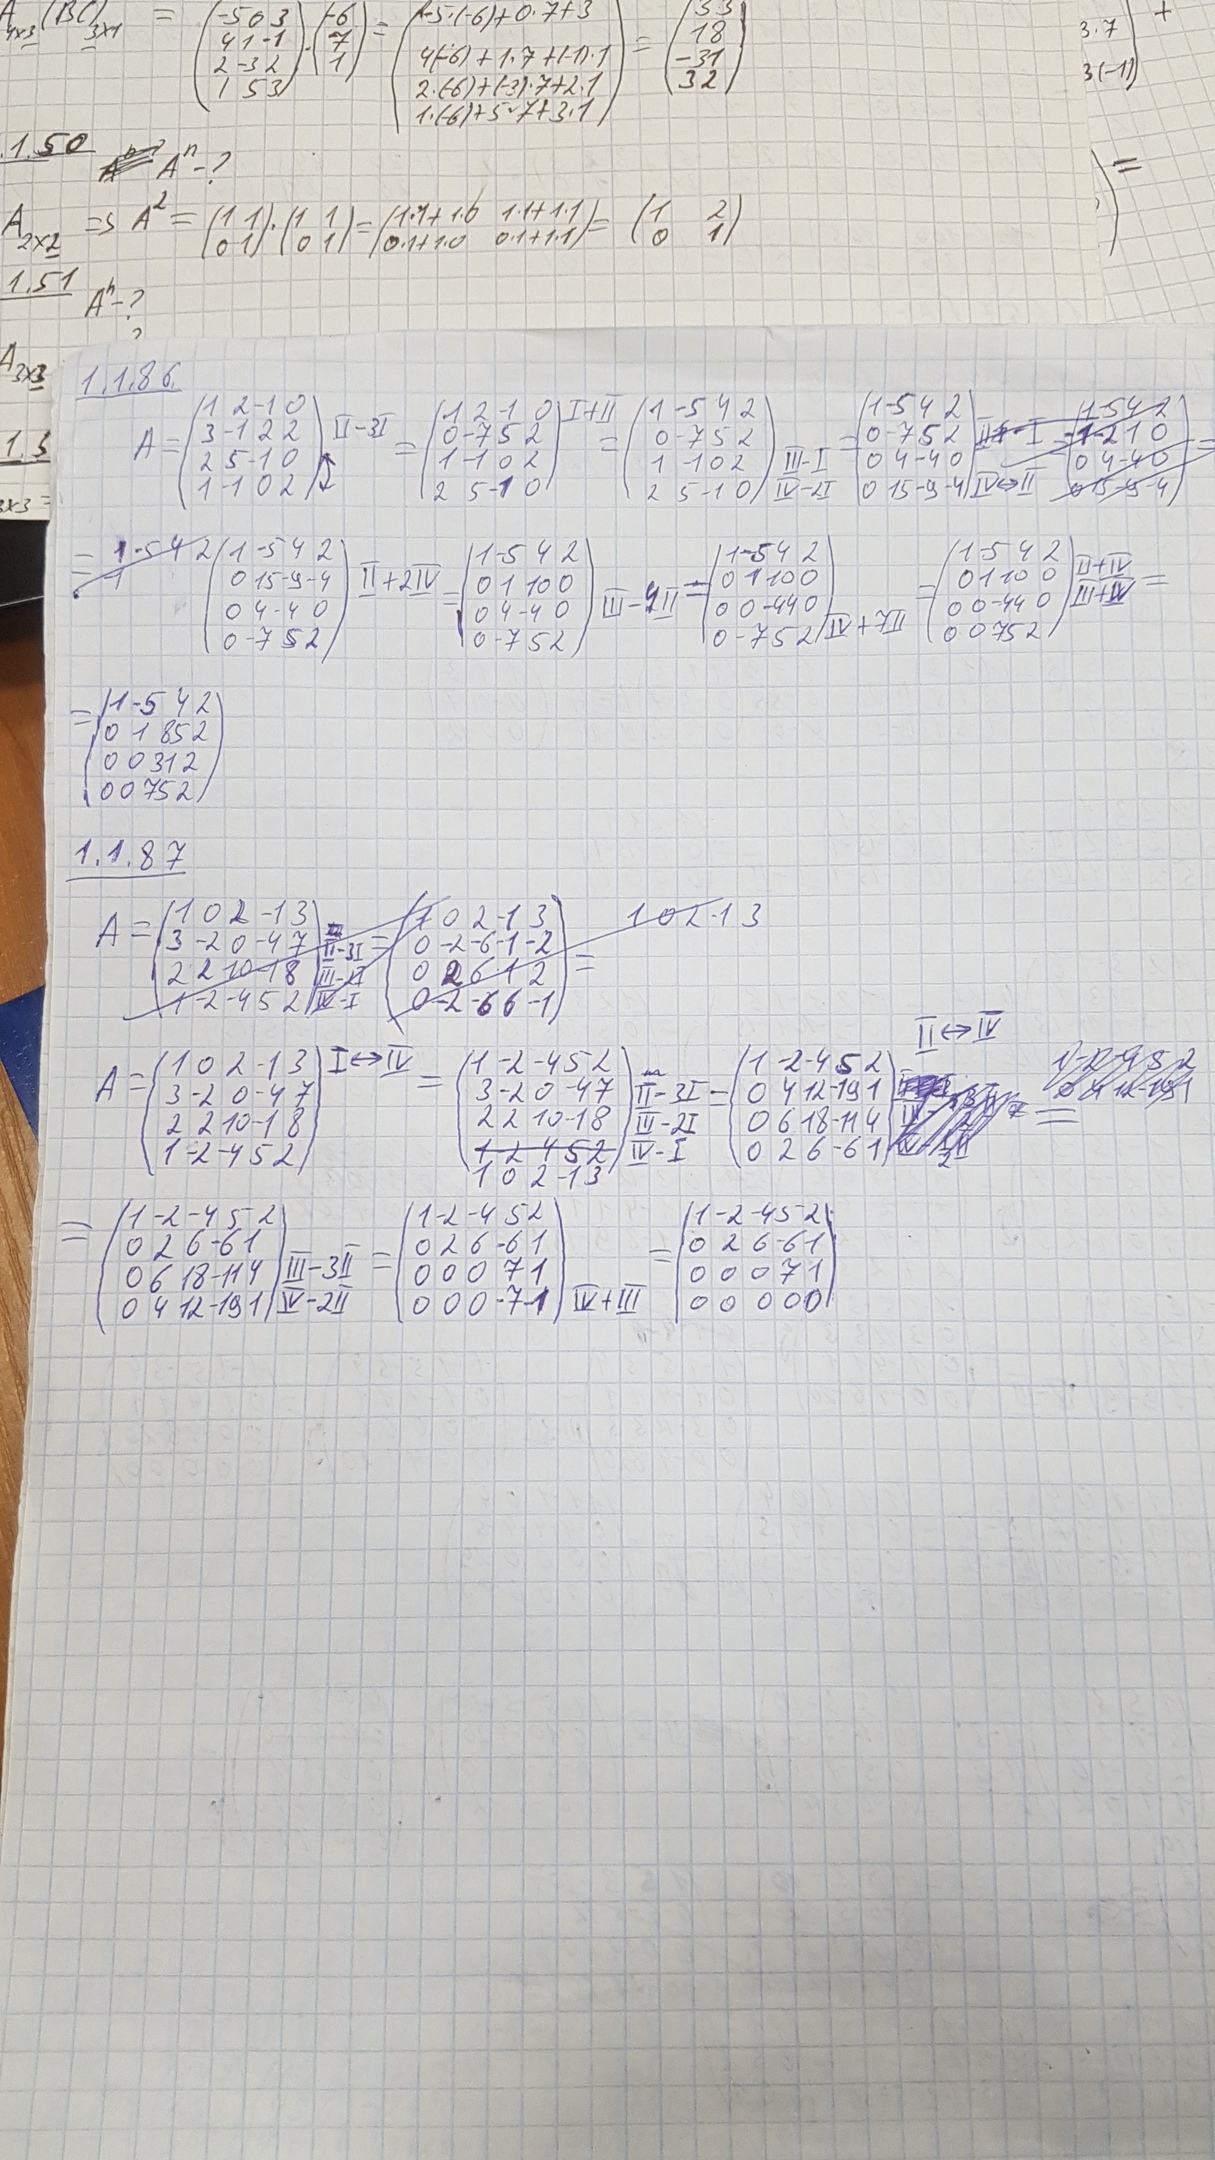 A4x3 (BC)3x1 = (-5 0 3 / 4 1 -1 / 2 -3 2 / 1 5 3) · (-6 / 7 / 1) = (-5·(-6)+0·7+3 / 4(-6)+1·7+(-1)·1 / 2·(-6)+(-3)·7+2·1 / 1·(-6)+5·7+3·1) = (33 / 18 / -31 / 32)
3·7
+
3(-1)
.1.50
A^n-?
A2x2 => A^2 = (1 1 / 0 1)·(1 1 / 0 1) = (1·1+1·0 1·1+1·1 / 0·1+1·0 0·1+1·1) = (1 2 / 0 1)
=
1.51
A^n-?
A3x3
1.3
3x3=
1.1.86.
A = (1 2 -1 0 / 3 -1 2 2 / 2 5 -1 0 / 1 -1 0 2) II-3I = (1 2 -1 0 / 0 -7 5 2 / 1 -1 0 2 / 2 5 -1 0) I+II = (1 -5 4 2 / 0 -7 5 2 / 1 -1 0 2 / 2 5 -1 0) III-I IV-2I = (1 -5 4 2 / 0 -7 5 2 / 0 4 -4 0 / 0 15 -9 -4) IV↔II = (1 -5 4 2 / 1 -2 1 0 / 0 4 -4 0 / 0 15 -9 -4) =
= 1 -5 4 2 (1 -5 4 2 / 0 15 -9 -4 / 0 4 -4 0 / 0 -7 5 2) II+2IV = (1 -5 4 2 / 0 1 10 0 / 0 4 -4 0 / 0 -7 5 2) III-4II = (1 -5 4 2 / 0 1 10 0 / 0 0 -44 0 / 0 -7 5 2) IV+7II = (1 -5 4 2 / 0 1 10 0 / 0 0 -44 0 / 0 0 75 2) II+IV III+IV =
= (1 -5 4 2 / 0 1 85 2 / 0 0 31 2 / 0 0 75 2)
1.1.87
A = (1 0 2 -1 3 / 3 -2 0 -4 7 / 2 2 10 -1 8 / 1 -2 -4 5 2) II-3I III-2I IV-I = (1 0 2 -1 3 / 0 -2 -6 -1 -2 / 0 2 6 1 2 / 0 -2 -6 6 -1) = 1 0 2 -1 3
II↔IV
A = (1 0 2 -1 3 / 3 -2 0 -4 7 / 2 2 10 -1 8 / 1 -2 -4 5 2) I↔IV = (1 -2 -4 5 2 / 3 -2 0 -4 7 / 2 2 10 -1 8 / 1 -2 -4 5 2 / 1 0 2 -1 3) II-3I III-2I IV-I = (1 -2 -4 5 2 / 0 4 12 -19 1 / 0 6 18 -11 4 / 0 2 6 -6 1) =
= (1 -2 -4 5 2 / 0 2 6 -6 1 / 0 6 18 -11 4 / 0 4 12 -19 1) III-3II IV-2II = (1 -2 -4 5 2 / 0 2 6 -6 1 / 0 0 0 7 1 / 0 0 0 -7 -1) IV+III = (1 -2 -4 5 2 / 0 2 6 -6 1 / 0 0 0 7 1 / 0 0 0 0 0)